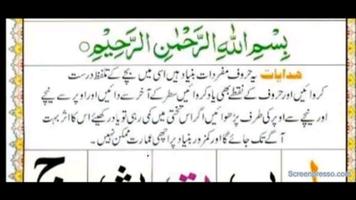 بِسْمِ اللّٰهِ الرَّحْمٰنِ الرَّحِيْمِ
ھدایات یہ حروف مفردات بنیاد ہیں اسی میں بچے کے تلفظ درست
کروائیں اور حروف کے نقطے بھی یاد کروائیں سطر کے آخر سے دائیں اور اوپر سے نیچے
اور نیچے سے اوپر کی طرف پڑھوائیں اگر اس تختی میں کمی رہی تو یاد رکھیئے اس کا اثر بہت
آگے تک جائے گا اور کمزور بنیاد پر اچھی عمارت ممکن نہیں۔
ا ب ت ث ج
Screenpresso.com